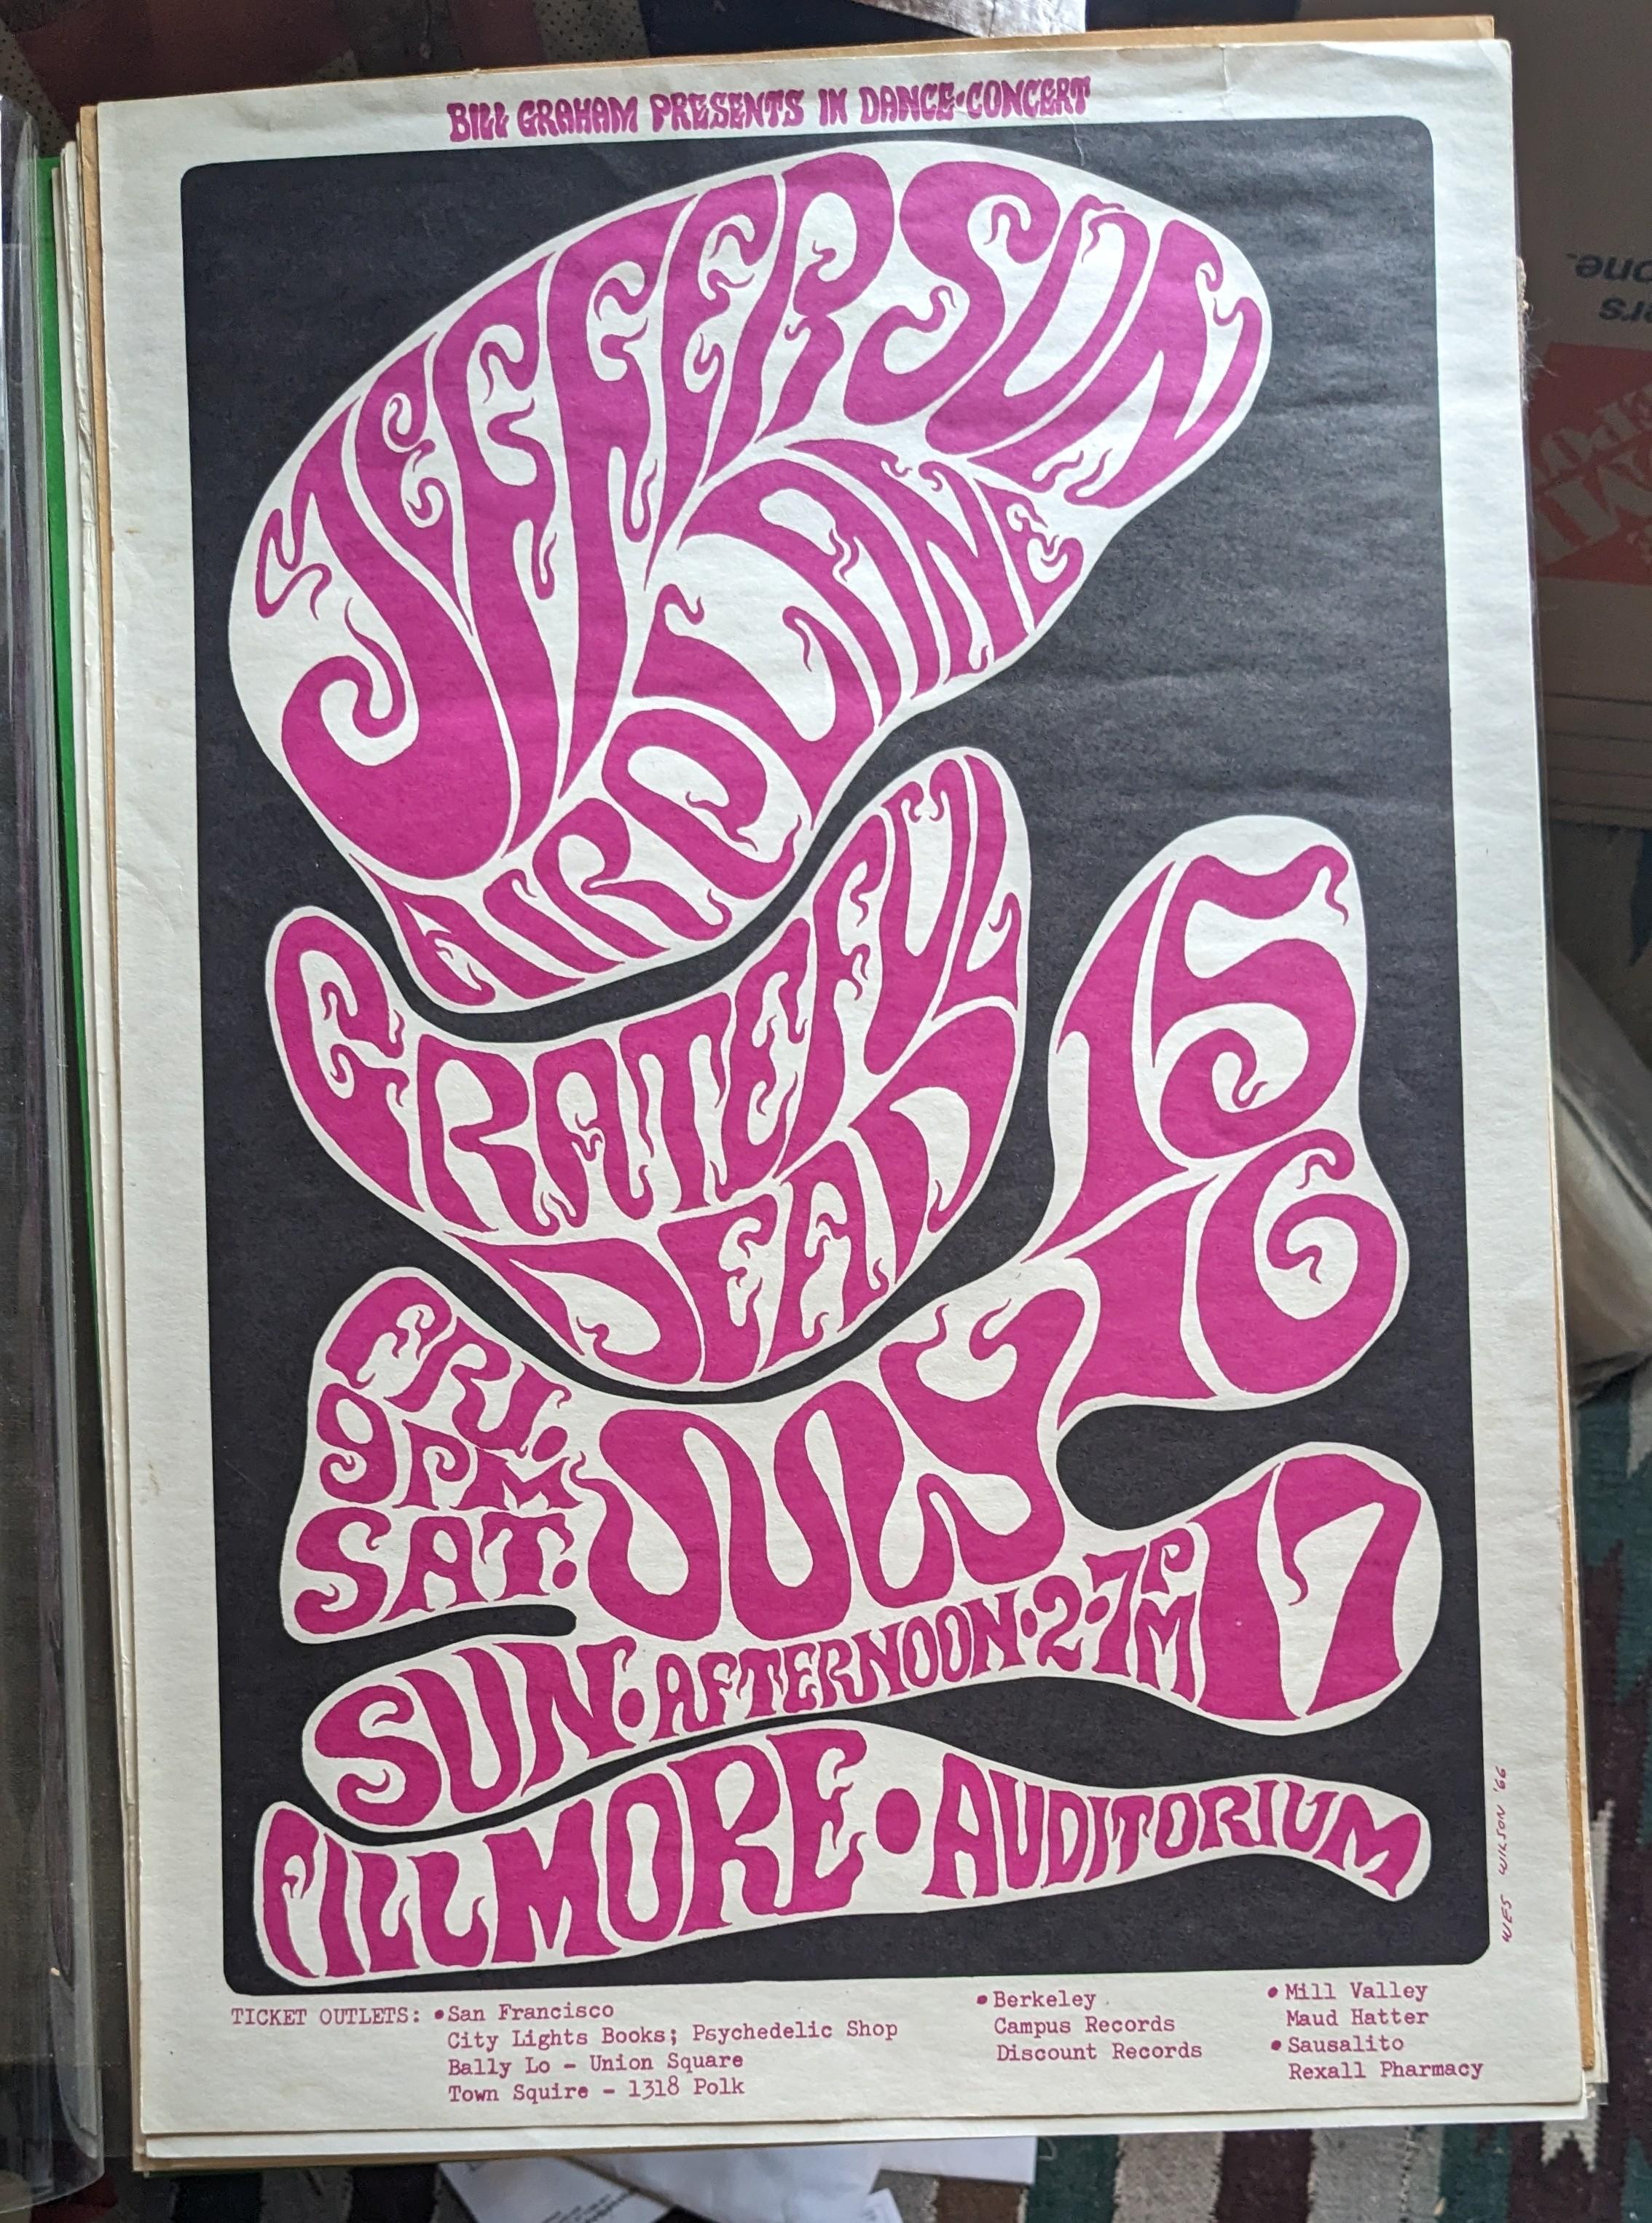 BILL GRAHAM PRESENTS IN DANCE•CONCERT
JEFFERSON
AIRPLANE
GRATEFUL
DEAD
15
16
FRI.
9PM
SAT.
JULY
SUN•AFTERNOON•2-7PM 17
FILLMORE•AUDITORIUM
WES WILSON '66
TICKET OUTLETS: •San Francisco
City Lights Books; Psychedelic Shop
Bally Lo - Union Square
Town Squire - 1318 Polk
•Berkeley
Campus Records
Discount Records
•Mill Valley
Maud Hatter
•Sausalito
Rexall Pharmacy